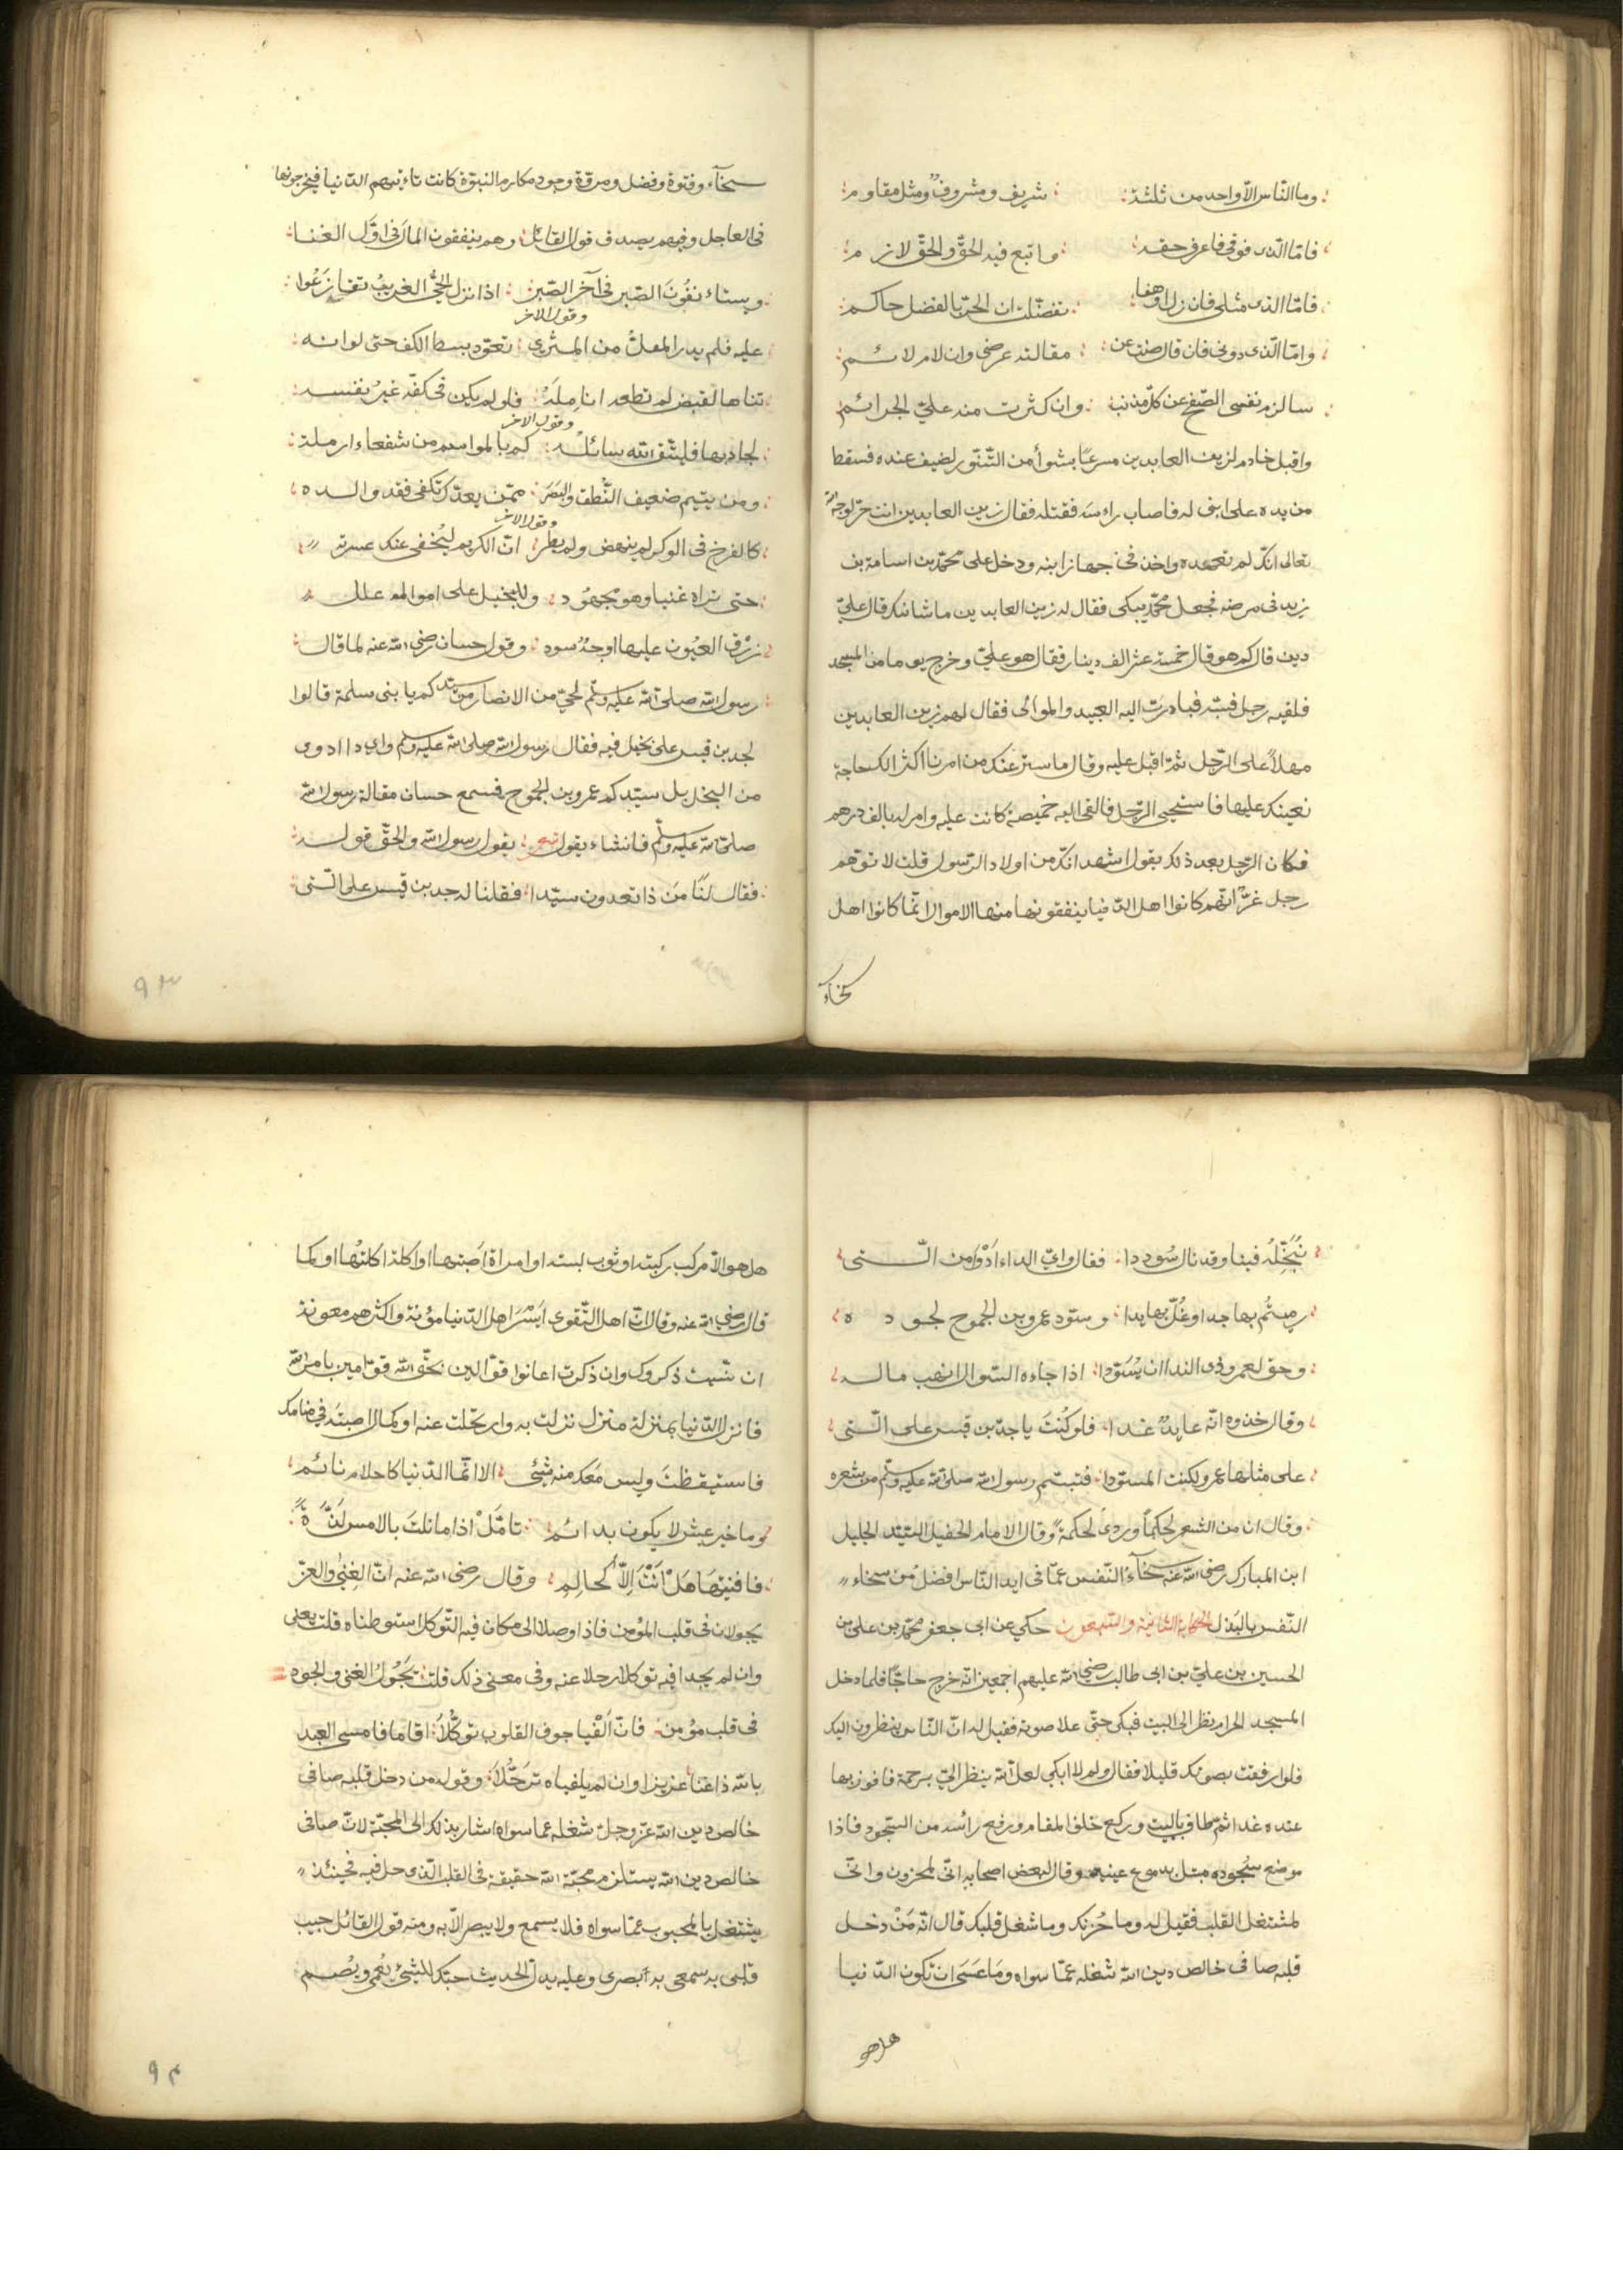 وما النّاس الّا واحد من ثلثة: شريف ومشروف ومثل مقاوم:
فامّا الذى فوقى فاعرف حقه: واتبع فيه الحقّ والحقّ لازم:
فامّا الذى مثلى فان زل او هفا: تفضّلت ان الحرّ بالفضل حاكم:
وامّا الّذى دونى فان قال صنت عن: مقالته عرضى وان لام لائم:
سالزم نفسى الصّفح عن كلّ مذنب: وان كثرت منه علىّ الجرائم
واقبل خادم لزين العابدين مسرعًا بشوأ من التّنّور لضيف عنده فسقط
من يده على ابنى له فاصاب راسه فقتله فقال زين العابدين انت حرّ لوجه الله
تعالى انّك لم تعمده واخذ فى جهاز ابنه ودخل على محمّد بن اسامة بن
زيد فى مرضه فجعل محمّد يبكى فقال له زين العابدين ما شانك قال علىّ
دين قال كم هو قال خمسة عشر الف دينار فقال هو علىّ وخرج يوما من المسجد
فلقيه رجل فسبّه فبادرت اليه العبيد والموالى فقال لهم زين العابدين
مهلاً على الرّجل ثمّ اقبل عليه وقال ما ستر عنك من امرنا اكثر الك حاجة
نعينك عليها فاستحيى الرّجل فالقى اليه خميصة كانت عليه وامر له بالف درهم
فكان الرّجل بعد ذلك يقول اشهد انّك من اولاد الرّسول قلت لا توهّم
رجل غرّ انّهم كانوا اهل الدّنيا ينفقونها منها الاموال انّما كانوا اهل
سخآء
سخآء وفتوة وفضل ومروّة وجود مكارم النبوّة كانت تاءتيهم الدّنيا فيخرجونها
فى العاجل وفيهم يصدق قول القائل: وهم ينفقون المال فى اوّل الغنا:
ويستاءنفُونَ الصّبر فى آخر الصّبر: اذا نزل الحىّ الغريبُ تقارَعُوا:
عليه فلم يدر المقلّ من المثرى: وقول الاخر تعوّد بسط الكف حتى لو انه:
تناها لقبض لم تطعه انامِلَهُ: فلو لم يكن فى كفّه غيرُ نفسه:
لجاد بها فليتّق الله سائلُه: وقول الاخر كم بالمواسم من شفعاء ارملة:
ومن يتيم ضعيف النّطق والبصَر: ممّن يعدّك تكفى فقد والده
كالفرخ فى الوكر لم ينهض ولم يطر: وقول الاخر انّ الكريم ليُخفى عنك عسرته
حتى تراه غنيا وهو مجهُود: وللبخيل على امواله علل
زرْق العيُون عليها اوجُهٌ سود: وقول حسان رضى الله عنه لما قال:
رسول الله صلى الله عليه وسلّم لحىّ من الانصار من سيّدكم يا بنى سلمة قالوا
لجد بن قيس على بخل فيه فقال رسول الله صلى الله عليه وسلم واى داا دوى
من البخل بل سيّدكم عمرو بن الجموح فسمع حسان مقالة رسول الله
صلى الله عليه وسلّم فانشاء يقول شعر: يقول رسول الله والحقّ قوله:
فقال لنا منَ ذا تعدون سيّدا: فقلنا له جد بن قيس على الّتى:
٩٣
نُبَخّلهُ فينا وقد نال سُوددا: فقال واىّ الداء ادْوَا من الّتى
رميتُم بها جدا وغُلّ بها يدا: وسوّد عمرو بن الجموح لجوده
وحق لعمرو ذى الندا ان يُسَوّدا: اذا جاءه السّوال انهب ماله
وقال خذوه انّه عايدٌ غدا: فلو كُنتَ ياجدّ بن قيس على الّتى
على مثلها عمرو لكنت المسوّدا: فتبسّم رسول الله صلى الله عليه وسلّم من شعره
وقال ان من الشعر لحكمًا وروى لحكمة وقال الامام الحفيل السّيّد الجليل
ابن المبارك رضى الله عنه سخآءُ النّفس عمّا فى ايد النّاس افضل من سخاء
النّفس بالبَذل الحكاية الثّانية والتسعون حكى عن ابى جعفر محمّد بن على بن
الحسين بن علىّ بن ابى طالب رضى الله عليهم اجمعين انّه خرج حاجًّا فلما دخل
المسجد الحرام نظر الى البيت فبكى حتّى علا صوته فقيل له انّ النّاس ينظرون اليك
فلو ارفقت بصوتك قليلا فقال ولم لا ابكى لعلّ الله ينظر الىّ برحمة فافوز بها
عنده غدا ثمّ طاف بالبيت وركع خلف المقام ورفع رائسه من السّجود فاذا
موضع سُجوده مبتل بدموع عينيه وقال لبعض اصحابه انّى لمحزون وانّى
لمشتغل القلب فقيل له وما حُزنك وما شغل قلبك قال انّه مَنْ دخل
قلبه صافى خالص دين الله شغله عمّا سواه ومَا عَسَى ان تكون الدّنيا
هل هو
هل هو الّا مركب ركبته او ثوب لبسته او امراة اصبتها او اكلة اكلتُها او كما
قال رضى الله عنه وقال انّ اهل التّقوى ايَسْرَ اهل الدّنيا مؤنة واكثرهم معونة
ان نسيت ذكروك وان ذكرت اعانوا قوّالين بحقّ الله قوّامين بامر الله
فانزل الدّنيا بمنزلة منزل نزلت به وارتحلت عنه او كمال اصبتَه فى منامك
فاستيقظتَ وليس مَعَك منه شيئ: الا انّما الدّنيا كاحلام نائم
وما خير عيش لا يكون بدائم: تامّلْ اذا ما نلتَ بالامس لذّةً:
فافنيتَها هَلْ انتَ اِلّا كحالِم: وقال رضى الله عنه انّ الغِنى والعزّ
يجولان فى قلب المؤمن فاذا وصلا الى مكان فيه التّوكل استوطناه قلت يعنى
وان لم يجدا فيه توكلا رحلا عنه وفى معنى ذلك قلت: تجُولُ الغنى والجود
فى قلب مؤمن: فانّ اَلْفيا جوف القلوب توكّلاً: اقاما فامسى العبد
بالله ذا غنا عزيزا وان لم يلفياه ترَحّلاَ: وقوله من دخل قلبه صافى
خالص دين الله عزّ وجلّ شغله عما سواه اشار بذلك الى المحبّة لانّ صافى
خالص دين الله يستلزم محبّة الله حقيقة فى القلب الّذى دخل فيه فحينئذ
يشتغل بالمحبوب عمّا سواه فلا يسمع ولا يبصر الّا به ومنه قول القائل حبيب
قلبى به سمعى به ابصرى وعليه يدلّ الحديث حبّك الشيئ يُعمى ويُصم
٩٤